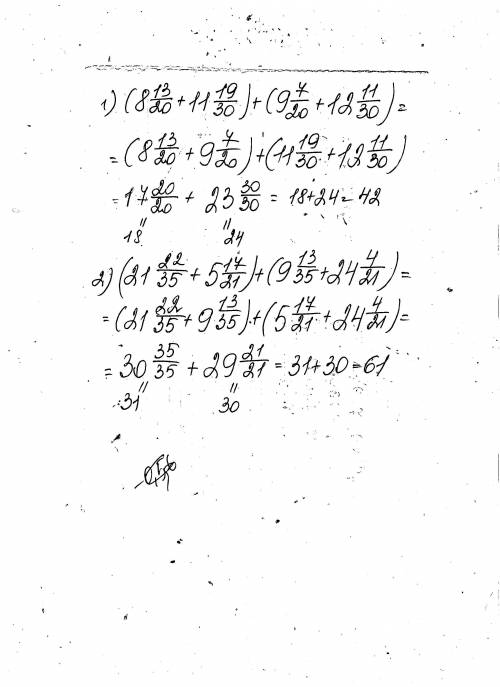 1) (8 13/20 + 11 19/30) + (9 7/20 + 12 11/30) =
= (8 13/20 + 9 7/20) + (11 19/30 + 12 11/30)
= 17 20/20 + 23 30/30 = 18 + 24 = 42
18 24
2) (21 22/35 + 5 17/21) + (9 13/35 + 24 4/21) =
= (21 22/35 + 9 13/35) + (5 17/21 + 24 4/21) =
= 30 35/35 + 29 21/21 = 31 + 30 = 61
31 30